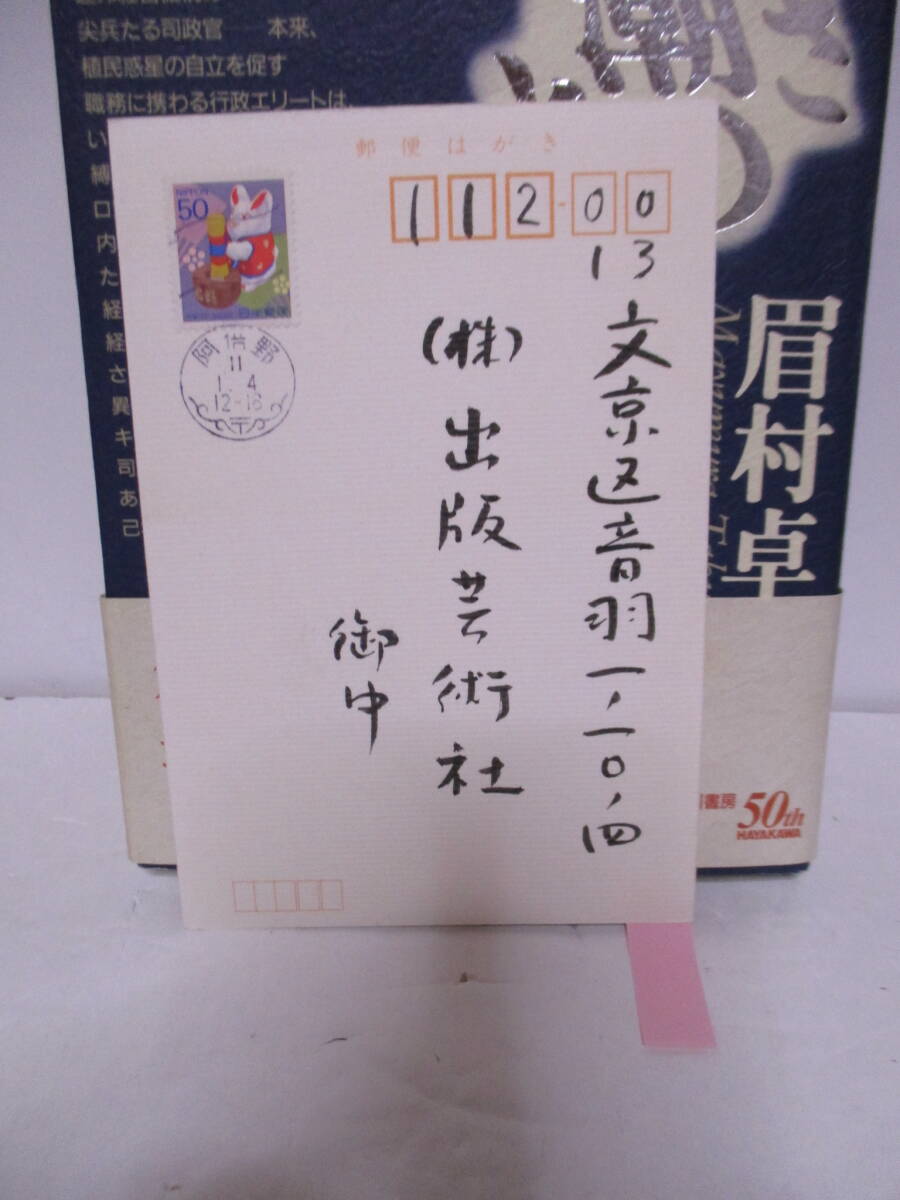 尖兵たる司政官──本来、
植民惑星の自立を促す
職務に携わる行政エリートは、
い
縛
ロ
内
た
経
経
さ
異
キ
司
あ
己
潮の
眉村卓
郵便はがき
112-00
13
文京区音羽一、一〇、四
(株)出版芸術社
御中
NIPPON
50
日本郵便
阿倍野
11
1.4
12-18
書房
50th
HAYAKAWA